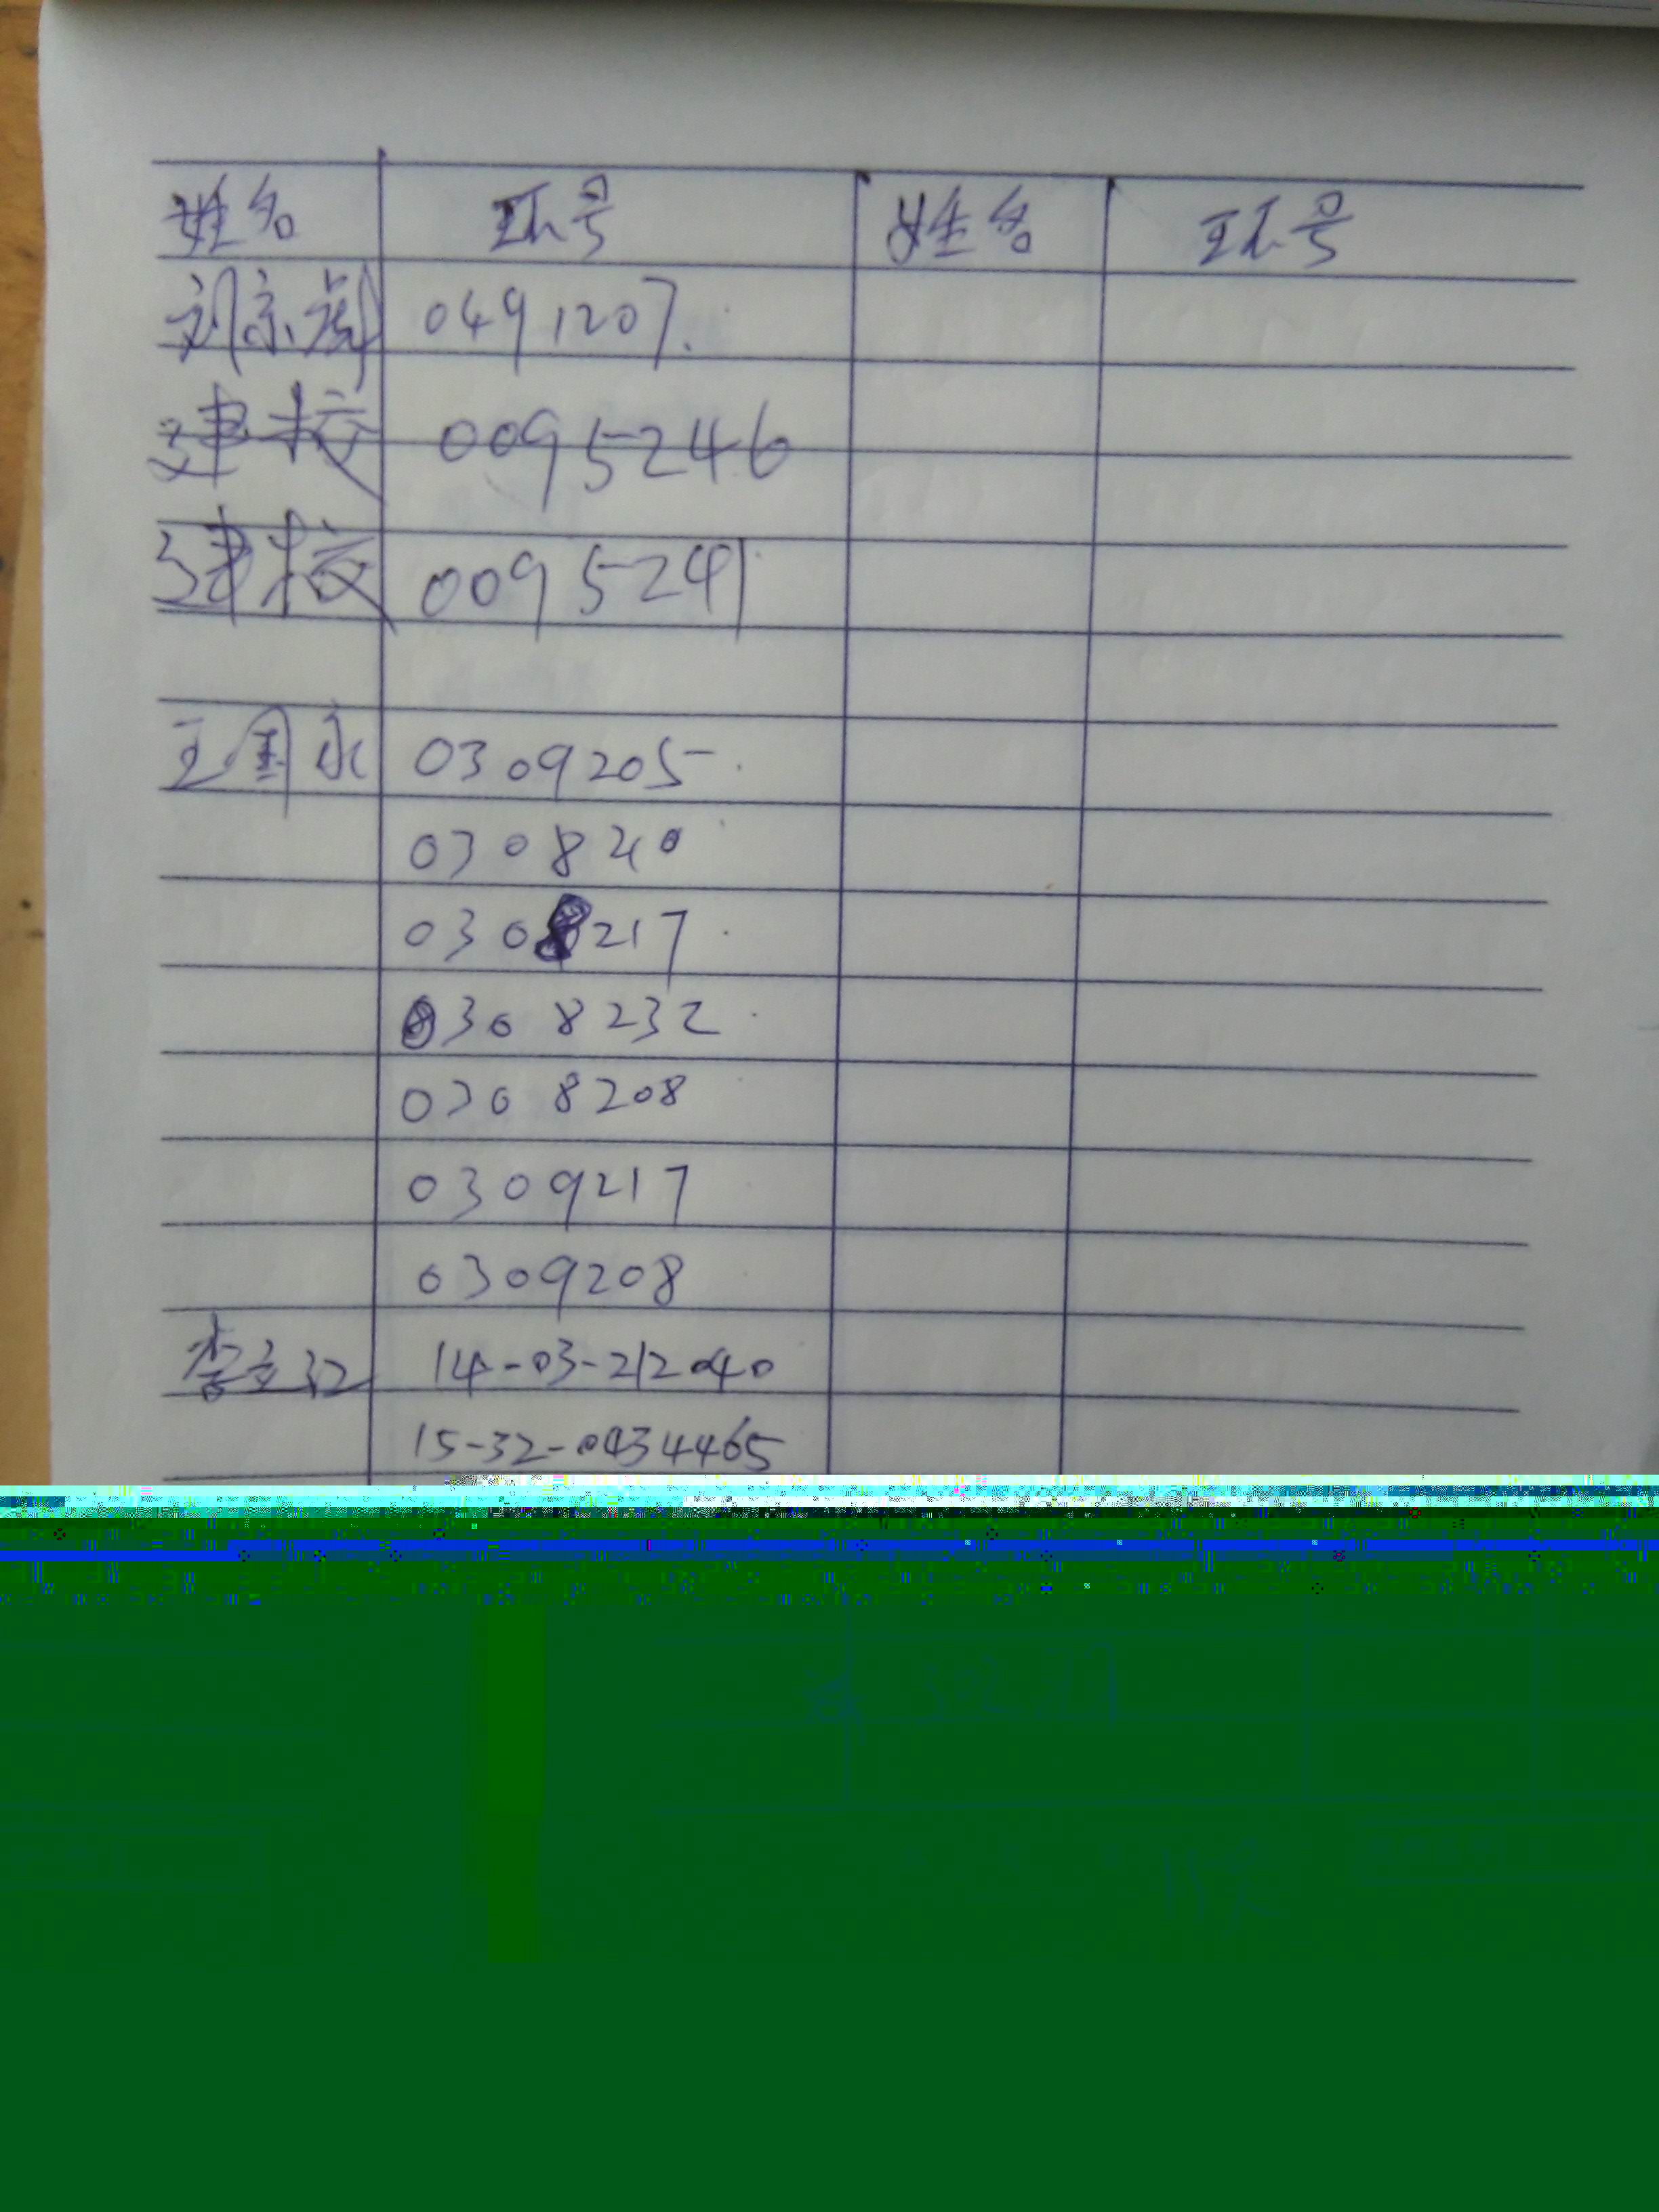 姓名 环号 姓名 环号
刘京 0491207.
建校 0095246
建校 0095241
王国永 0309205
030820
0308217
0308232
0308208
0309217
0309208
李立 14-03-212040
15-32-0434465